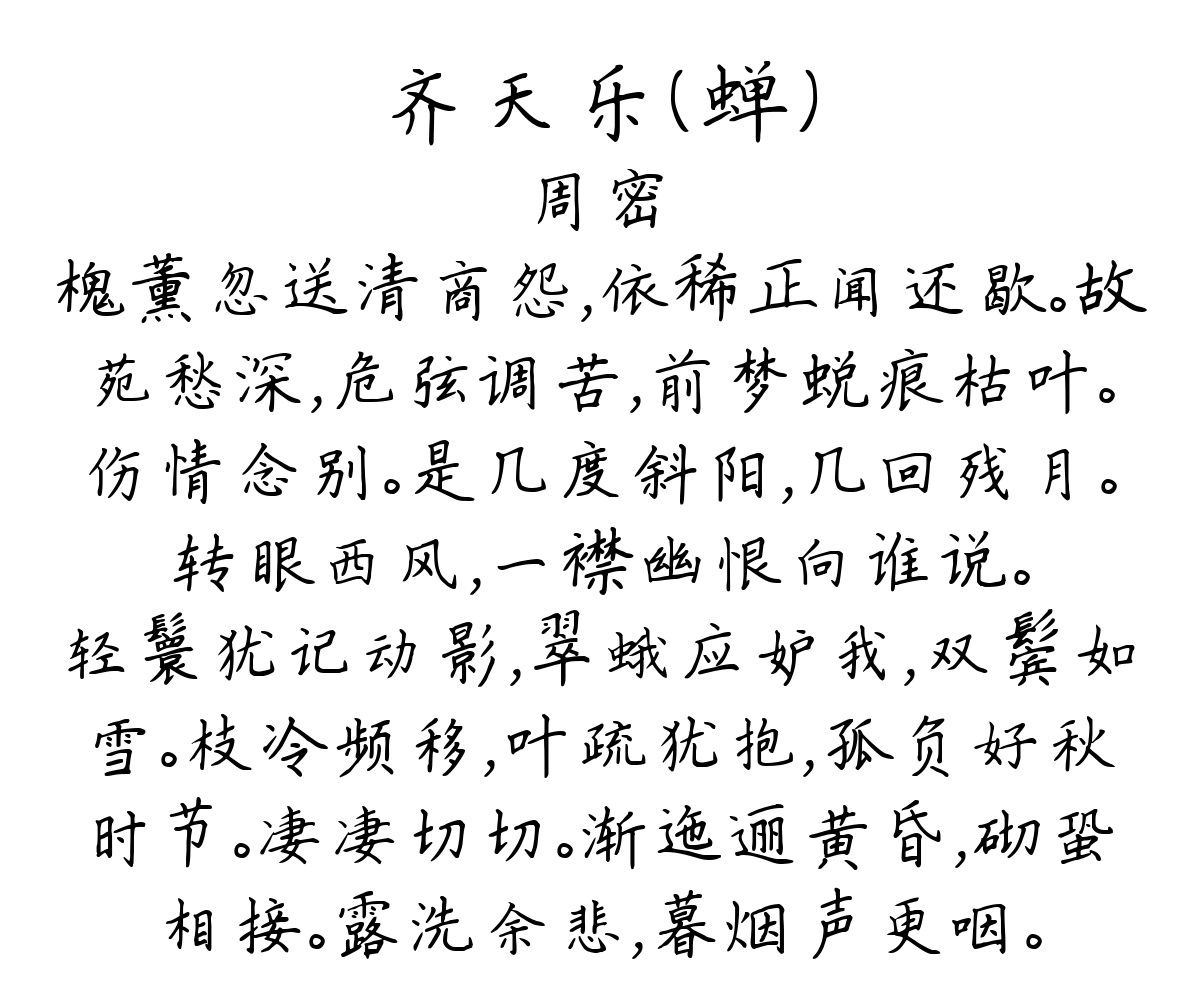 齐天乐(蝉)
周密
槐薰忽送清商怨,依稀正闻还歇。故
苑愁深,危弦调苦,前梦蜕痕枯叶。
伤情念别。是几度斜阳,几回残月。
转眼西风,一襟幽恨向谁说。
轻鬟犹记动影,翠蛾应妒我,双鬓如
雪。枝冷频移,叶疏犹抱,孤负好秋
时节。凄凄切切。渐迤逦黄昏,砌蛩
相接。露洗余悲,暮烟声更咽。